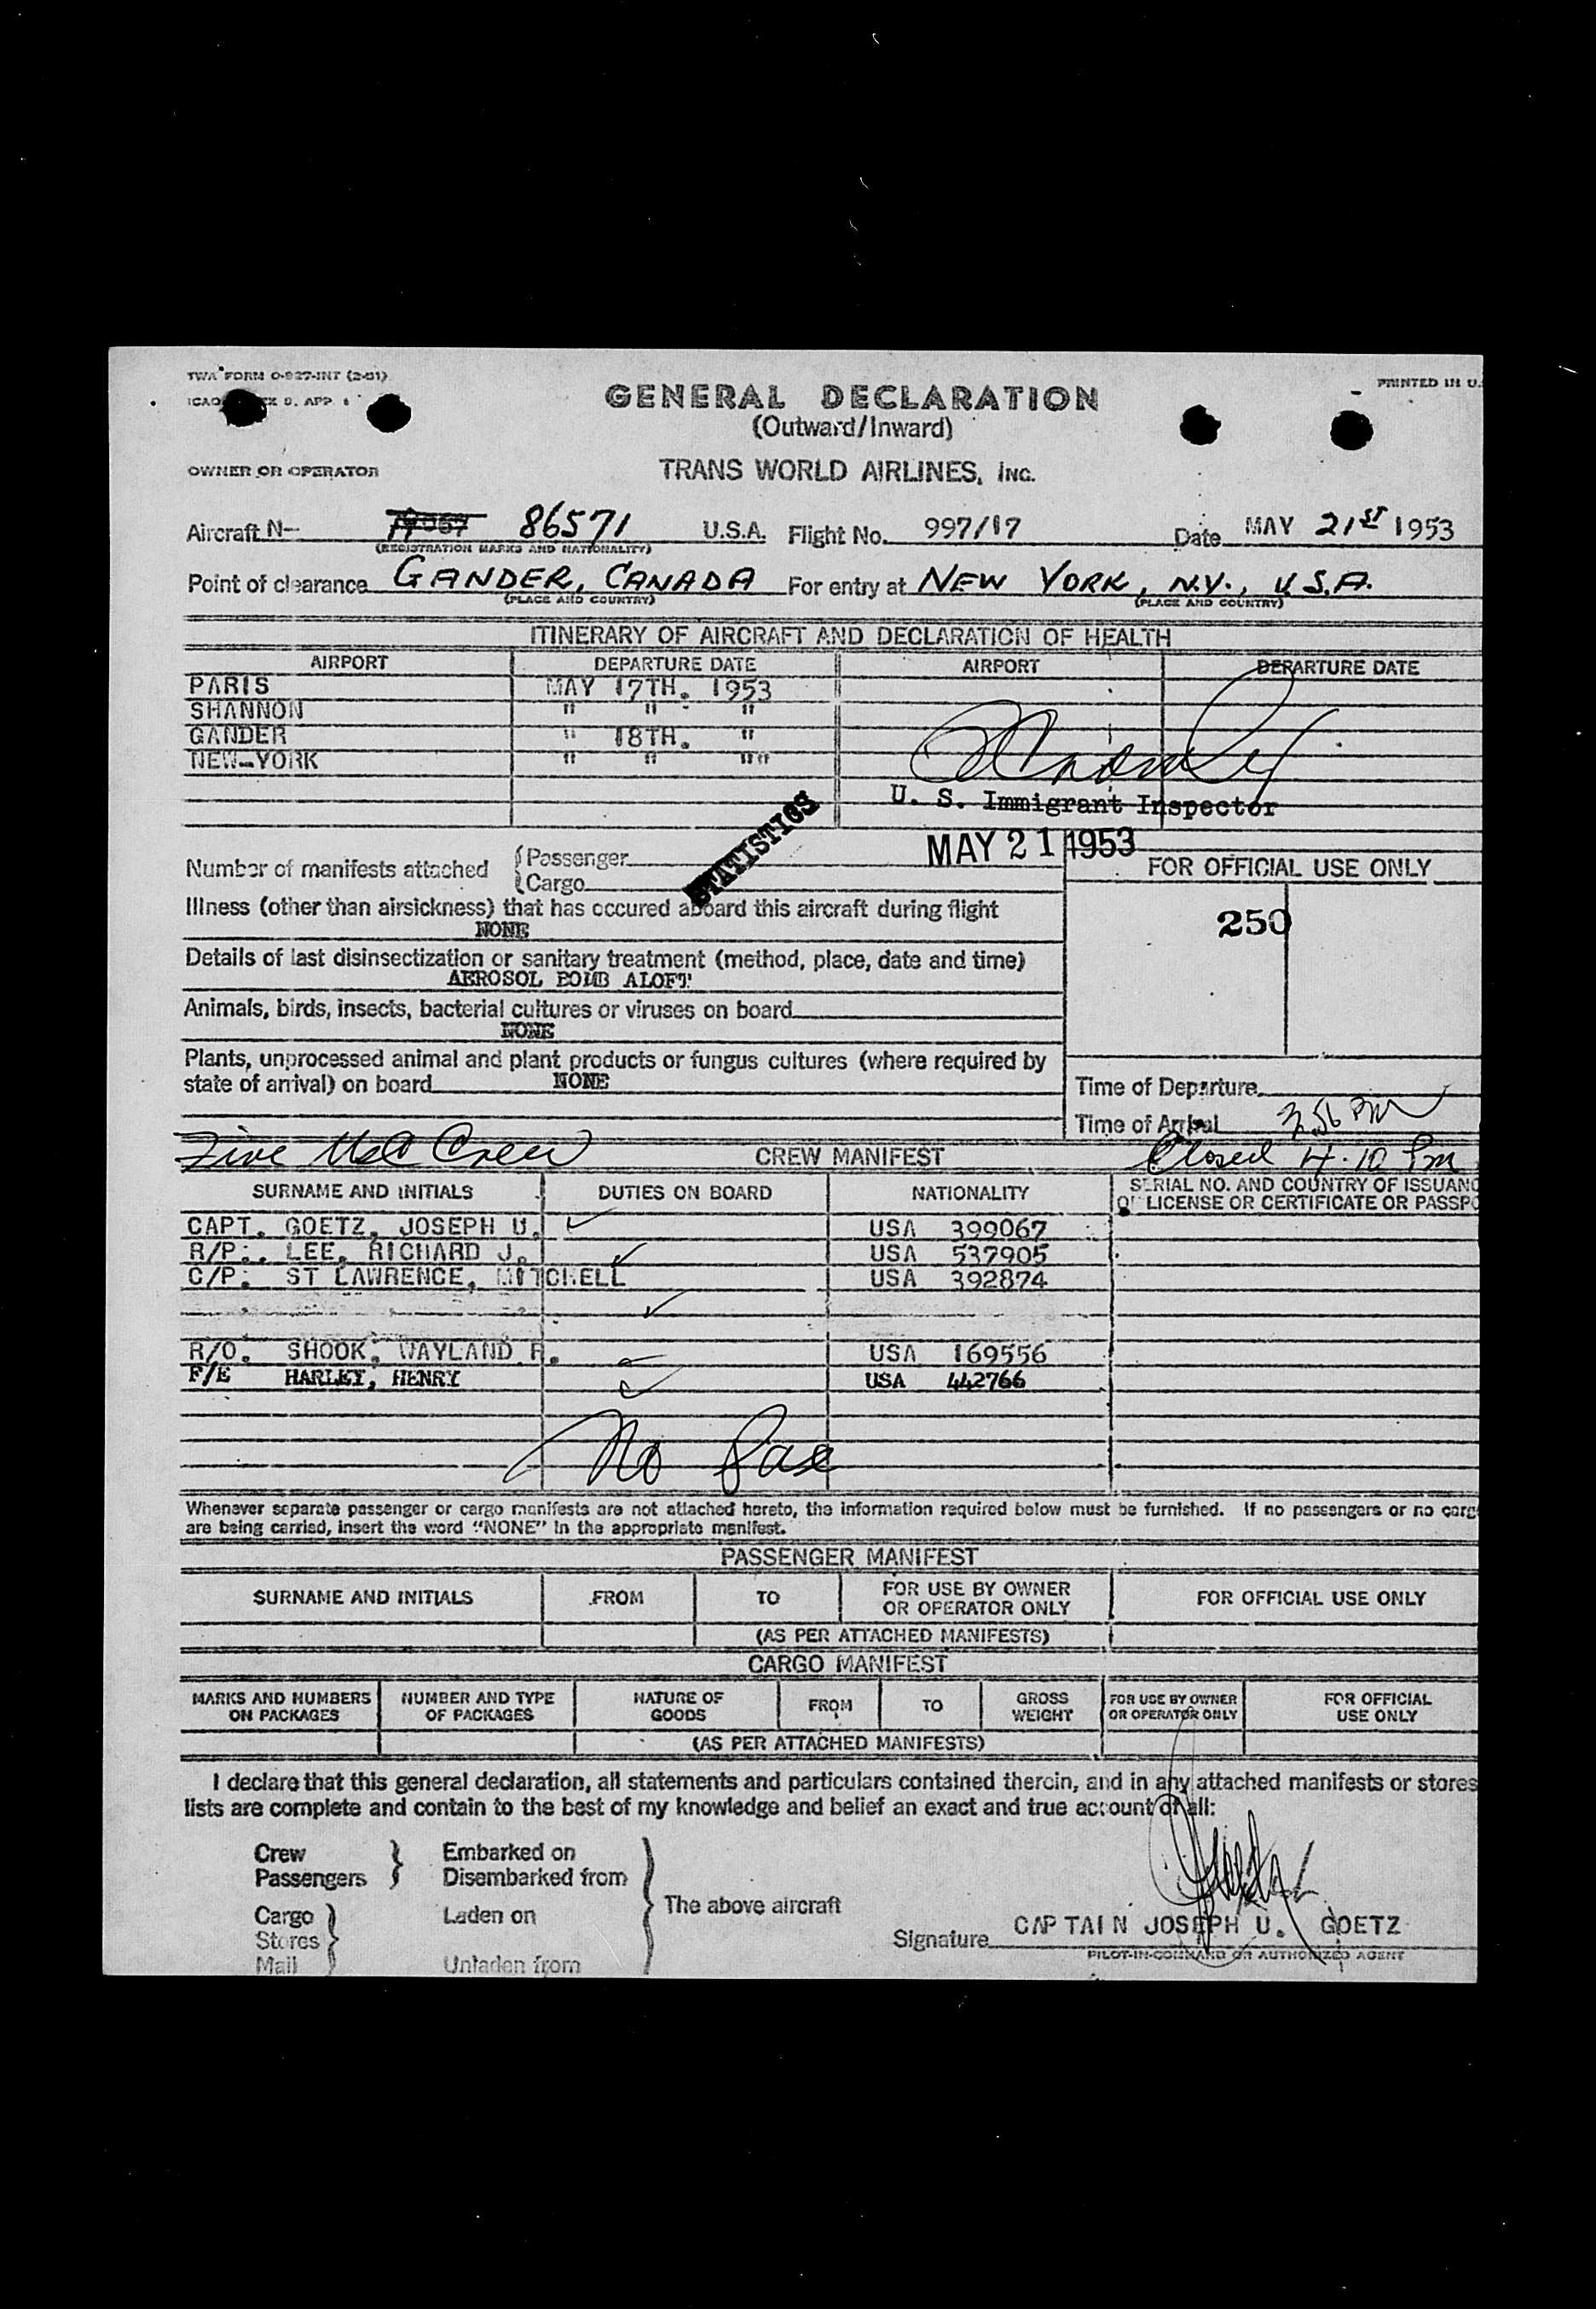 TWA FORM O-927-INT (2-51)
PRINTED IN U.
ICAO EX 9. APP.
GENERAL DECLARATION
(Outward/Inward)
OWNER OR OPERATOR
TRANS WORLD AIRLINES, INC.
Aircraft N- 86571 U.S.A. Flight No. 997/17 Date MAY 21ST 1953
(REGISTRATION MARKS AND NATIONALITY)
Point of clearance GANDER, CANADA For entry at NEW YORK, N.Y., U.S.A.
(PLACE AND COUNTRY) (PLACE AND COUNTRY)
ITINERARY OF AIRCRAFT AND DECLARATION OF HEALTH
AIRPORT DEPARTURE DATE AIRPORT DEPARTURE DATE
PARIS MAY 17TH. 1953
SHANNON " " "
GANDER " 18TH. "
NEW-YORK " " ""
U. S. Immigrant Inspector
STATISTICS
MAY 21 1953
Number of manifests attached Passenger
Cargo
FOR OFFICIAL USE ONLY
Illness (other than airsickness) that has occured aboard this aircraft during flight
NONE
250
Details of last disinsectization or sanitary treatment (method, place, date and time)
AEROSOL BOMB ALOFT
Animals, birds, insects, bacterial cultures or viruses on board
NONE
Plants, unprocessed animal and plant products or fungus cultures (where required by
state of arrival) on board NONE
Time of Departure
Time of Arrival 3.56 PM
Five USC Crew CREW MANIFEST Closed 4.10 Pm
SURNAME AND INITIALS DUTIES ON BOARD NATIONALITY SERIAL NO. AND COUNTRY OF ISSUANC
OF LICENSE OR CERTIFICATE OR PASSPO
CAPT. GOETZ, JOSEPH U. USA 399067
R/P:. LEE, RICHARD J. USA 537905
C/P: ST LAWRENCE, MITCHELL USA 392874
R/O. SHOOK, WAYLAND R. USA 169556
F/E HARLEY, HENRY USA 442766
No Pax
Whenever separate passenger or cargo manifests are not attached hereto, the information required below must be furnished. If no passengers or no carg
are being carried, insert the word "NONE" in the appropriate manifest.
PASSENGER MANIFEST
SURNAME AND INITIALS FROM TO FOR USE BY OWNER OR OPERATOR ONLY FOR OFFICIAL USE ONLY
(AS PER ATTACHED MANIFESTS)
CARGO MANIFEST
MARKS AND NUMBERS ON PACKAGES NUMBER AND TYPE OF PACKAGES NATURE OF GOODS FROM TO GROSS WEIGHT FOR USE BY OWNER OR OPERATOR ONLY FOR OFFICIAL USE ONLY
(AS PER ATTACHED MANIFESTS)
I declare that this general declaration, all statements and particulars contained therein, and in any attached manifests or stores
lists are complete and contain to the best of my knowledge and belief an exact and true account of all:
Crew Embarked on
Passengers Disembarked from
The above aircraft
Cargo Laden on
Stores
Mail Unladen from
Signature CAPTAIN JOSEPH U. GOETZ
PILOT-IN-COMMAND OR AUTHORIZED AGENT